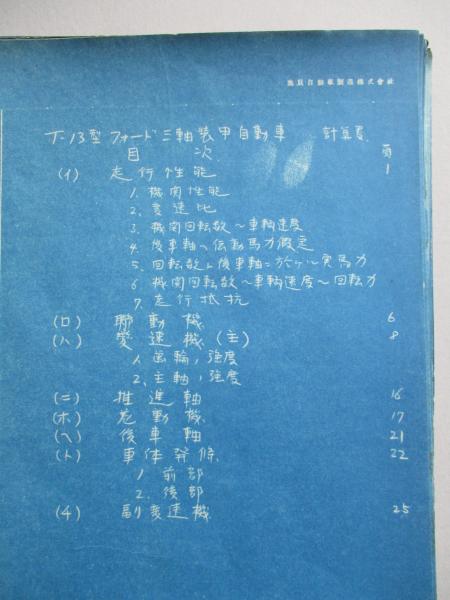 自動車製造株式會社
T-13型 フォード三軸装甲自動車 計算書
目 次 頁
(イ) 走行性能 1
1. 機関性能
2. 変速比
3. 機関回転数〜車軸速度
4. 後車軸ヘ伝動馬力假定
5. 回転数ト後車軸ニ於ケル実馬力
6 機関回転数〜車軸速度〜回転力
7. 走行抵抗
(ロ) 聯動機 6
(ハ) 変速機 (主) 8
1. 歯輪ノ強度
2. 主軸ノ強度
(ニ) 推進軸 16
(ホ) 動機 17
(ヘ) 後車軸 21
(ト) 車体発條 22
1 前部
2. 後部
(チ) 副変速機 25